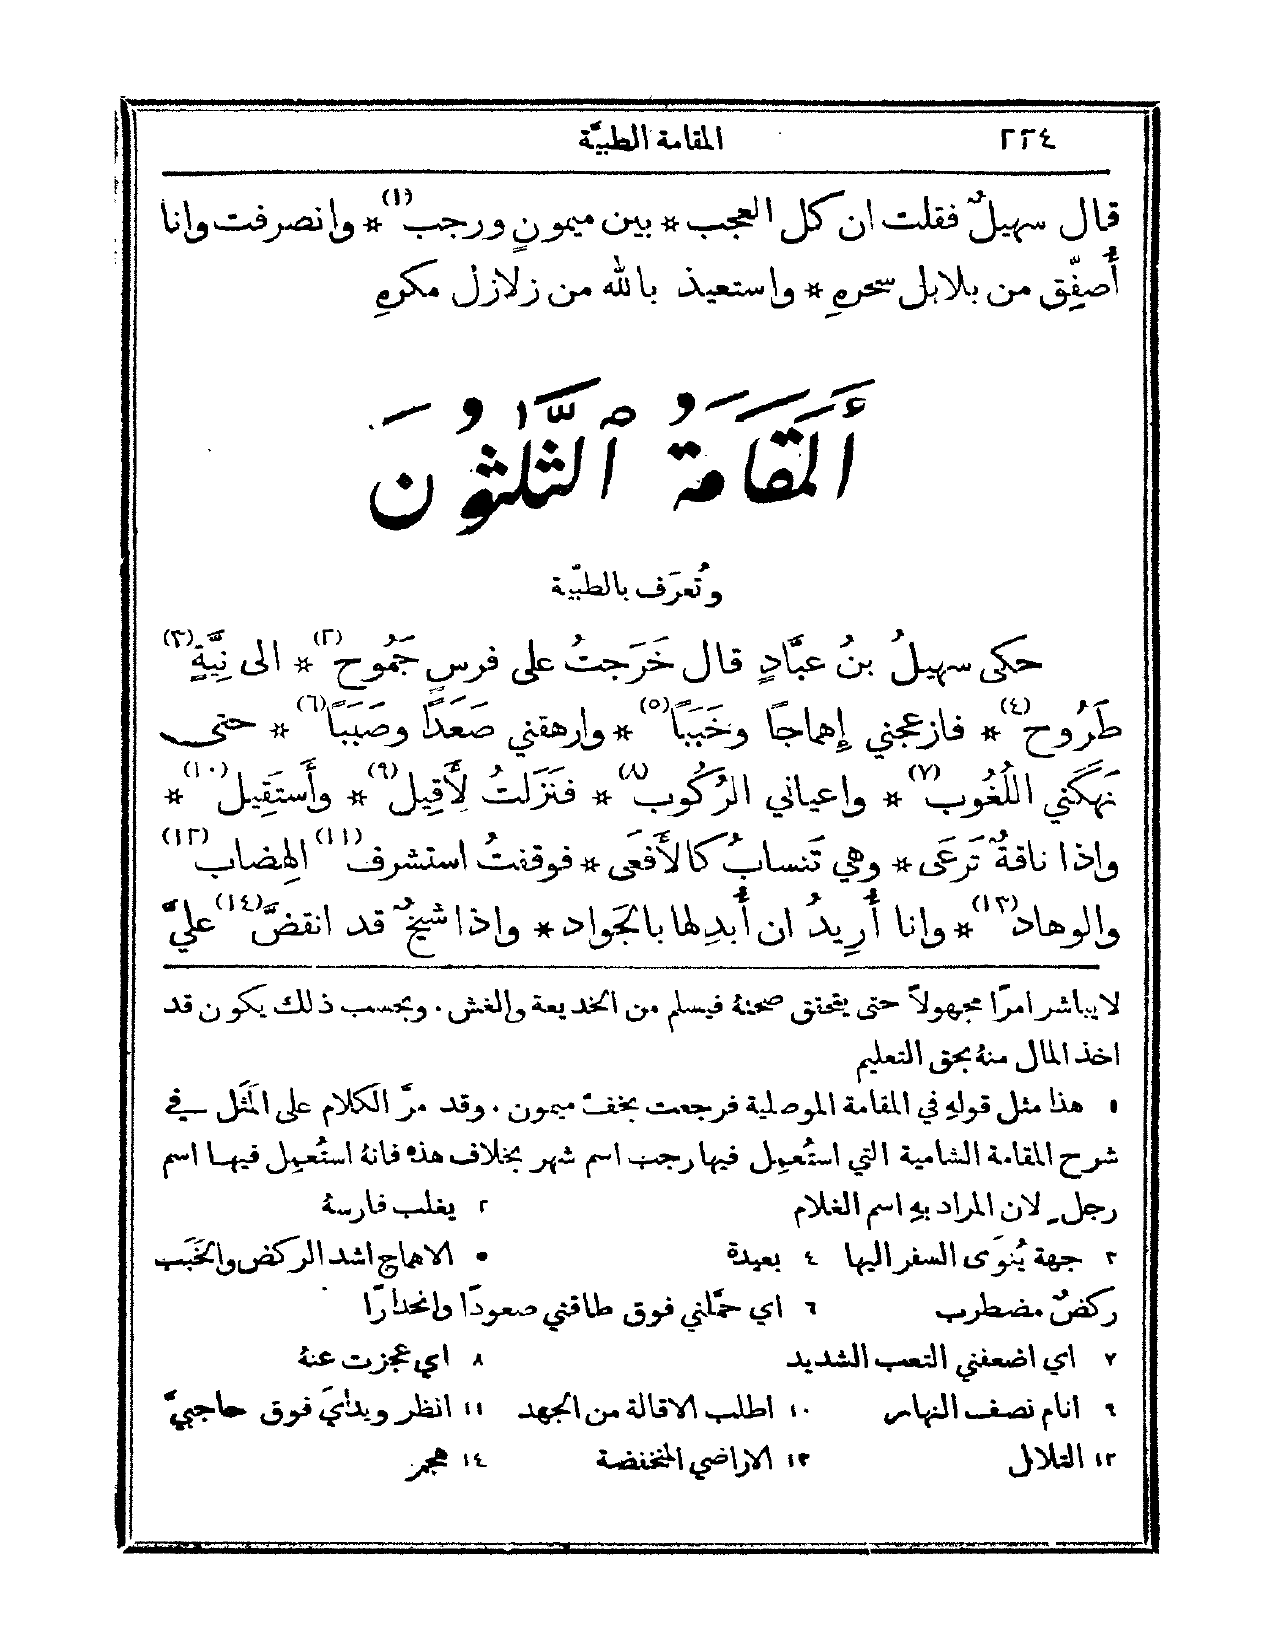 ٢٢٤ المقامة الطبيَّة
قال سهيلٌ فقلت ان كل العجب * بين ميمونٍ ورجب(١) * وانصرفت وانا
أُصفِّق من بلابل سحرهِ * واستعيذ بالله من زلازل مكرهِ
أَلمَقَامَةُ ٱلثَّلٰثُونَ
وتُعرَف بالطبيّة
حكى سهيلُ بنُ عبَّادٍ قال خَرَجتُ على فرسٍ جَمُوح(٢) * الى نِيَّةٍ(٣)
طَرُوح(٤) * فازعجني إِهماجًا وخَبَبًا(٥) * وارهقني صَعَدًا وصَبَبًا(٦) * حتى
نَهَكَني اللُغُوب(٧) * واعياني الرُكُوب(٨) * فنَزَلتُ لأَقِيل(٩) * وأَستَقِيل(١٠) *
واذا ناقةٌ تَرعَى * وهي تَنسابُ كالأَفعى * فوقفتُ استشرف(١١) الهِضاب(١٢)
والوهاد(١٣) * وانا أُرِيدُ ان أُبدِلها بالجَواد * واذا شيخٌ قد انقضَّ(١٤) عليَّ
لا يباشر امرًا مجهولاً حتى يتحقق صحتهُ فيسلم من الخديعة والغش . وبحسب ذلك يكون قد
اخذ المال منهُ بحق التعليم
١ هذا مثل قولهِ في المقامة الموصلية فرجعت بخفّ ميمون . وقد مرَّ الكلام على المَثَل في
شرح المقامة الشامية التي استُعمِل فيها رجب اسم شهر بخلاف هذه فانهُ استُعمِل فيها اسم
رجل لان المراد بهِ اسم الغلام ٢ يغلب فارسهُ
٣ جهة يُنوَى السفر اليها ٤ بعيدة ٥ الاهماج اشد الركض والخَبَب
ركضٌ مضطرب ٦ اي حمَّلني فوق طاقتي صعودًا وانحدارًا
٧ اي اضعفني التعب الشديد ٨ اي عجزت عنهُ
٩ انام نصف النهار ١٠ اطلب الاقالة من الجهد ١١ انظر ويدايَ فوق حاجبيَّ
١٢ التلال ١٣ الاراضي المنخفضة ١٤ هجم